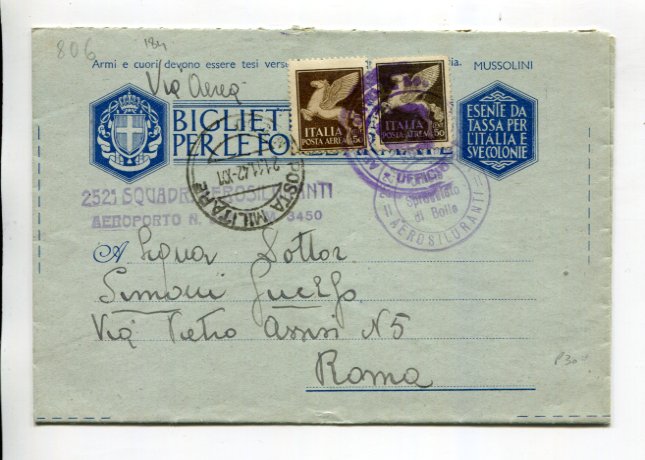 806
Armi e cuori devono essere tesi vers ia. MUSSOLINI
Via Aerea
BIGLIET
PER LE FO
ITALIA
POSTA AEREA
50
ITALIA
POSTA AEREA
50
ESENTE DA
TASSA PER
L'ITALIA E
SVE COLONIE
POSTA MILITARE
21.11.42
UFFICI
Sprovvisto
di Bollo
AEROSILURANTI
252ª SQUADR AEROSILURANTI
AEROPORTO N. M. 3450
A
Simoni
Via Pietro Assisi N 5
Roma